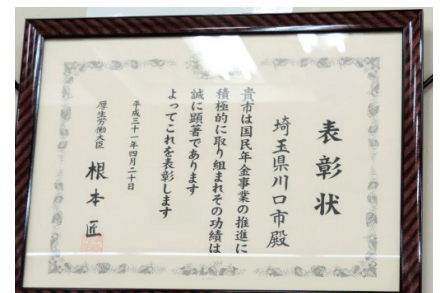 表彰状
埼玉県川口市殿
貴市は国民年金事業の推進に
積極的に取り組まれその功績は
誠に顕著であります
よってこれを表彰します
平成三十一年四月二十日
厚生労働大臣 根本匠